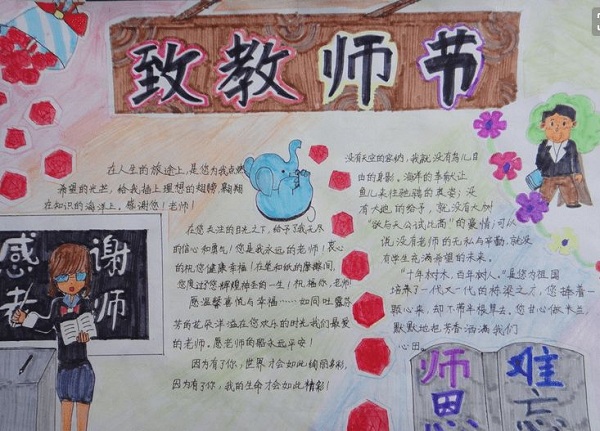 致教师节
在人生的旅途上,是您为我点燃
希望的光芒,给我插上理想的翅膀,翱翔
在知识的海洋上。感谢您!老师!
在您关注的目光之下,给予了我无尽
的信心和勇气!您是我永远的老师!衷心
的祝您健康幸福!在笔和纸的摩擦间,
您度过了您辉煌神圣的一生!祝福你,老师!
愿温馨喜悦与幸福……如同吐露芬
芳的花朵洋溢在您欢乐的时光我们最爱
的老师,愿老师的脑永远平安!
因为有了你,世界才会如此绚丽多彩,
因为有了你,我的生命才会如此精彩!
没有天空的容纳,我就没有鸟儿自
由的身影。海洋的奉献让
鱼儿来往驰骋的英姿;没
有大地的给予,就没有大树
“欲与天公试比高”的豪情;可以
说没有老师的无私与辛勤,就没
有学生充满希望的未来。
“十年树木,百年树人。”是您为祖国
培养了一代又一代的栋梁之才,您捧着一
颗心来,却不带半根草去。您甘心做
默默地也芳香洒满我们
心田。
感谢
老师
师恩
难忘